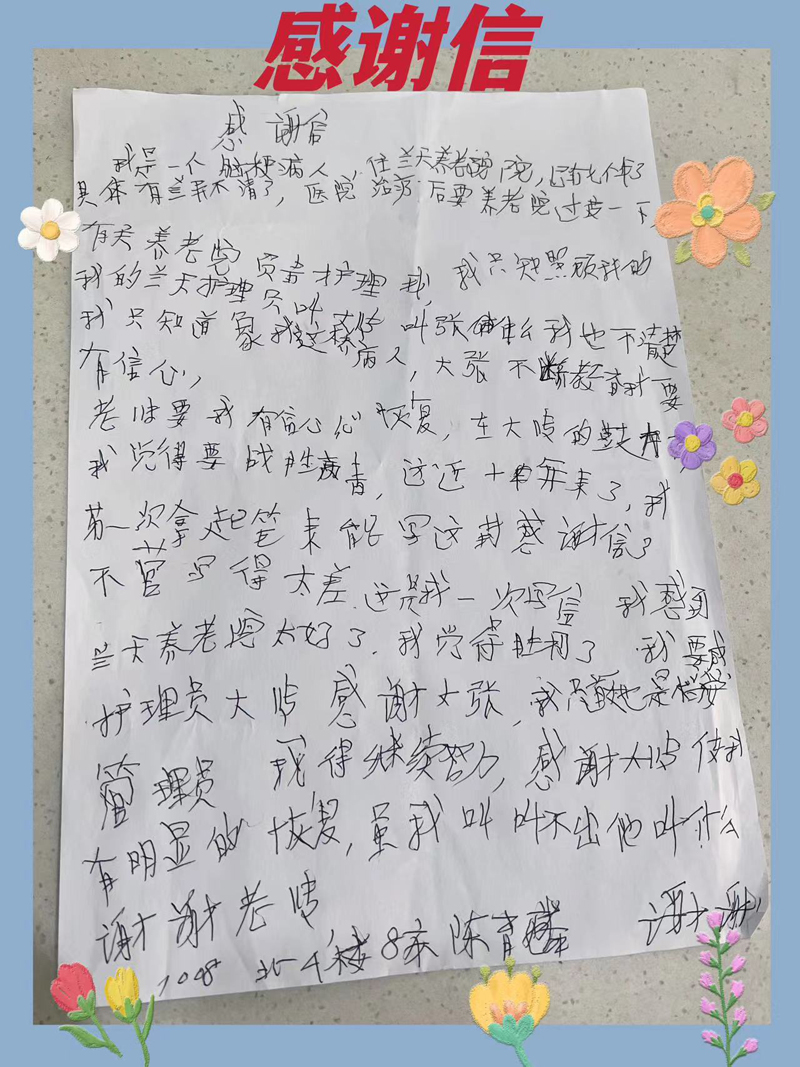 感谢信
感 谢信
我是一个脑梗病人，住兰天养老院，已有七个年了
具体有些弄不清了，医院治疗后要养老院过度一下，
有天养老院负责护理我，我只知照顾我的
我的兰天护理员叫
我只知道象我这样 叫张 什么我也不清楚
有信心， 病人，大张不断教育我一要
老张要我有信心 恢复，在大张的鼓
我觉得要战胜病毒，这近十年来了，我
第一次拿起笔来能写这封感谢信了
不管写得太差 这是我一次写信 我感到
兰天养老院太好了．我觉得胜利了 我要感
护理员大张 感谢大张，我只道他是
管理员 我得继续努力，感谢大张使我
有明显的恢复，虽我叫叫不出他叫什么
谢谢老张， 谢谢
7008 4楼8床 陈青